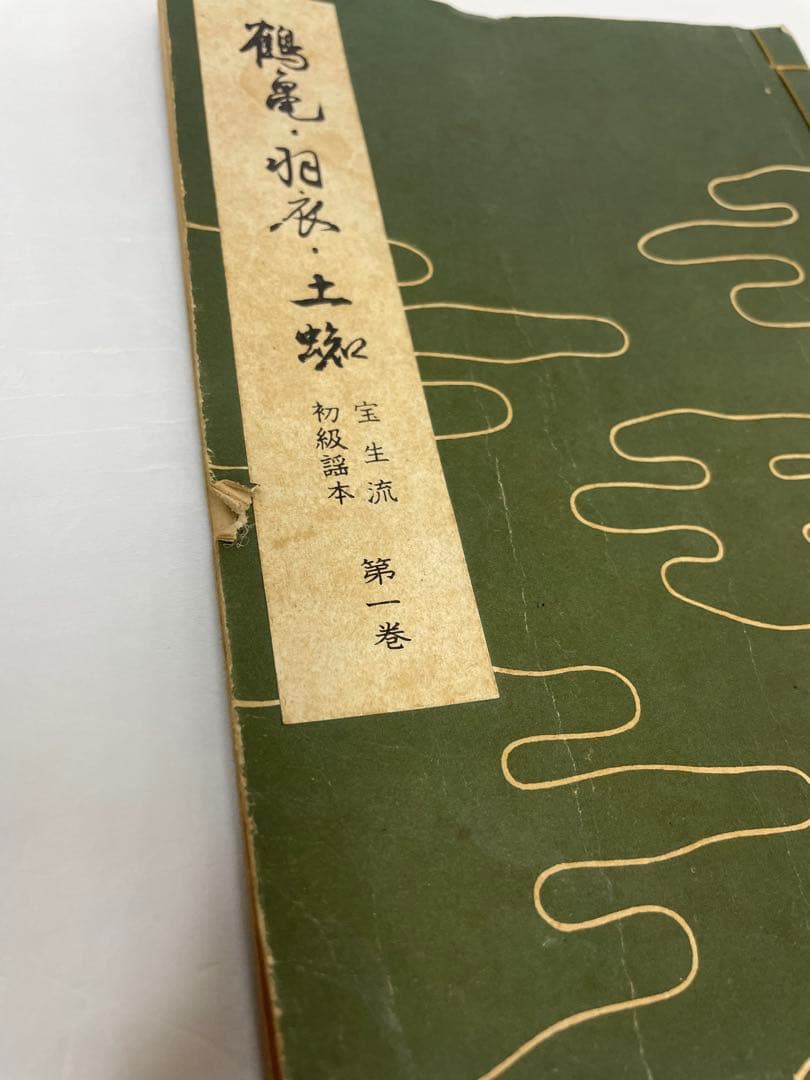 鶴亀・羽衣・土蜘
宝生流
初級謡本
第一巻